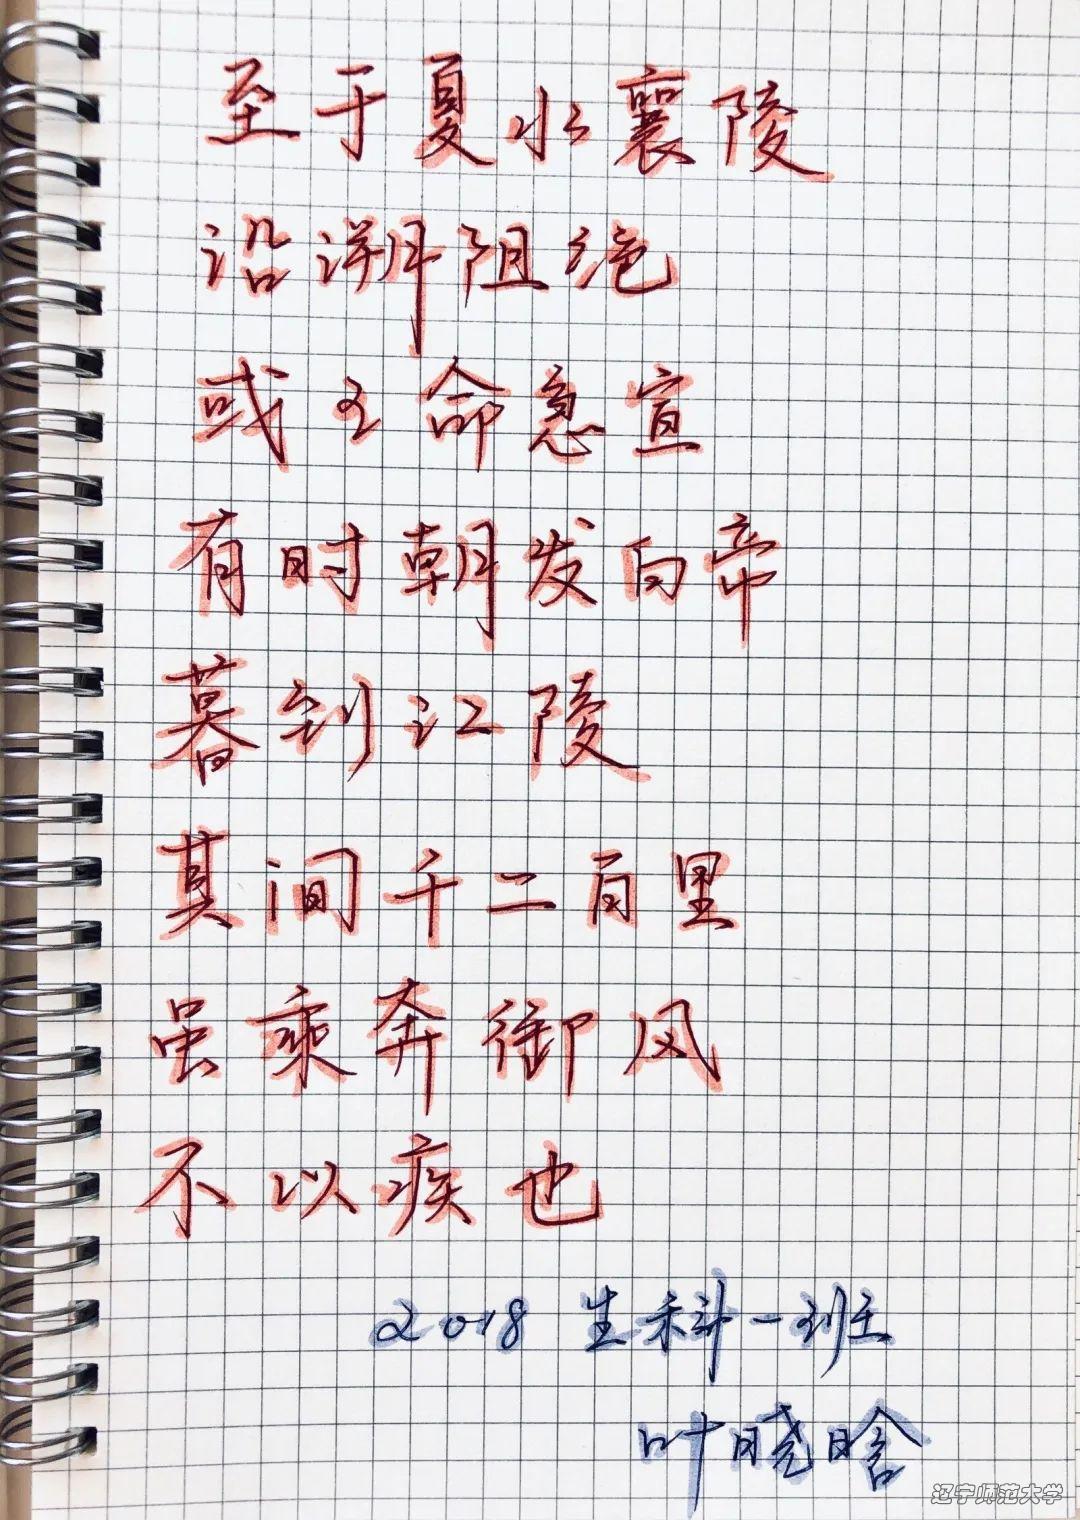 至于夏水襄陵
沿溯阻绝
或王命急宣
有时朝发白帝
暮到江陵
其间千二百里
虽乘奔御风
不以疾也
2018 生科一班
叶晓晗
辽宁师范大学